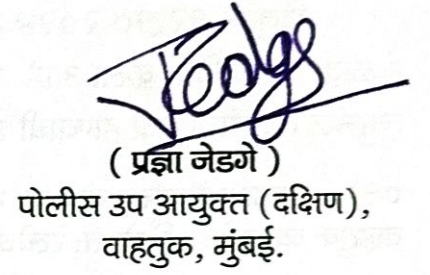 ( प्रज्ञा जेडगे )
पोलीस उप आयुक्त (दक्षिण),
वाहतुक, मुंबई.